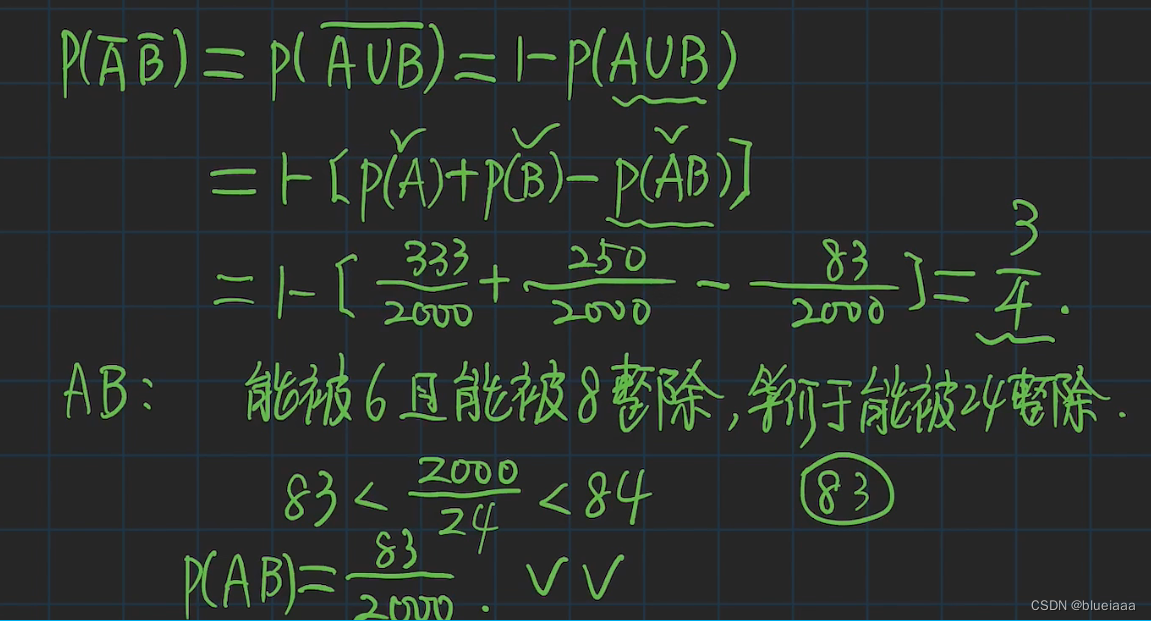 P(A̅ B̅) = P(A̅∪̅B̅) = 1-P(A∪B)
= 1-[P(A)+P(B)-P(AB)]
= 1-[333/2000 + 250/2000 - 83/2000] = 3/4.
AB: 能被6且能被8整除,等价于能被24整除.
83 < 2000/24 < 84 83
P(AB)=83/20000.
CSDN @blueiaaa